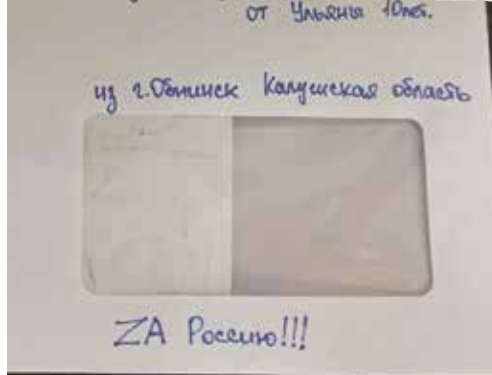 от Ульяны 10лет.
из г.Обнинск Калужская область
ZA Россию!!!